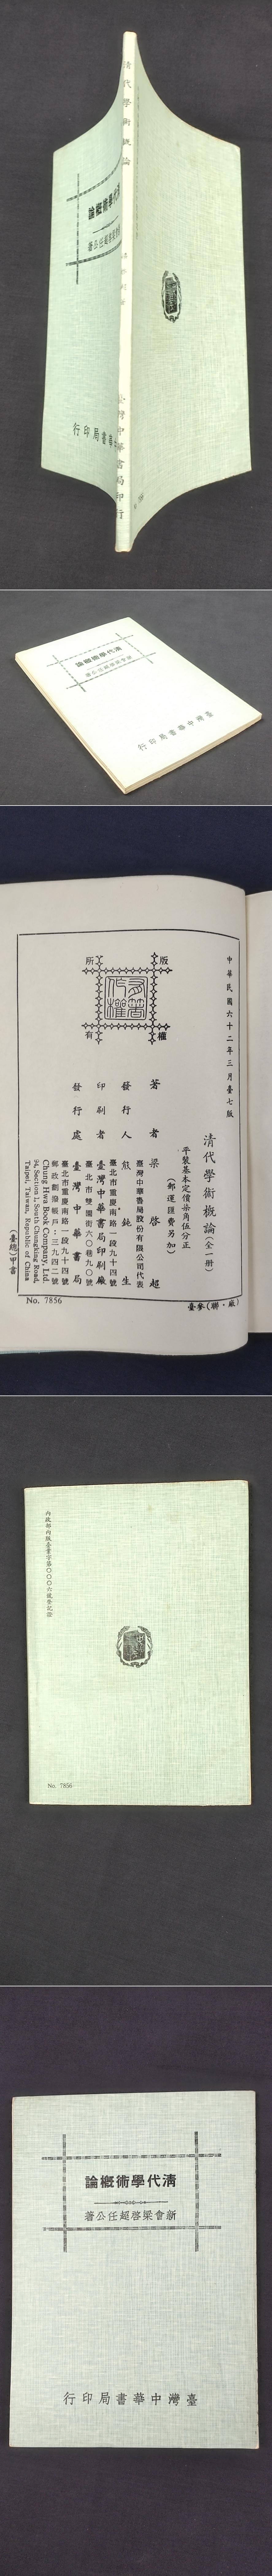 清代學術概論
臺灣中華書局印行
清代學術概論
行印局書
清代學術概論
新會梁啓超任公著
臺灣中華書局印行
中華民國六十二年三月臺七版
清代學術概論(全一册)
平裝基本定價柒角伍分正
(郵運匯費另加)
著者 梁啓超
發行人 熊鈍生
臺灣中華書局股份有限公司代表
臺北市重慶南路一段九十四號
印刷者 臺灣中華書局印刷廠
臺北市雙園街六〇巷九〇號
發行處 臺灣中華書局
臺北市重慶南路一段九十四號
郵政劃撥帳戶:三九四二號
Chung Hwa Book Company, Ltd.
94, Section 1, South Chungking Road,
Taipei, Taiwan, Republic of China
版權所有
(臺總)甲書
No. 7856
臺參(聯・廠)
內政部內版臺業字第〇〇〇六號登記證
No. 7856
清代學術概論
新會梁啓超任公著
臺灣中華書局印行